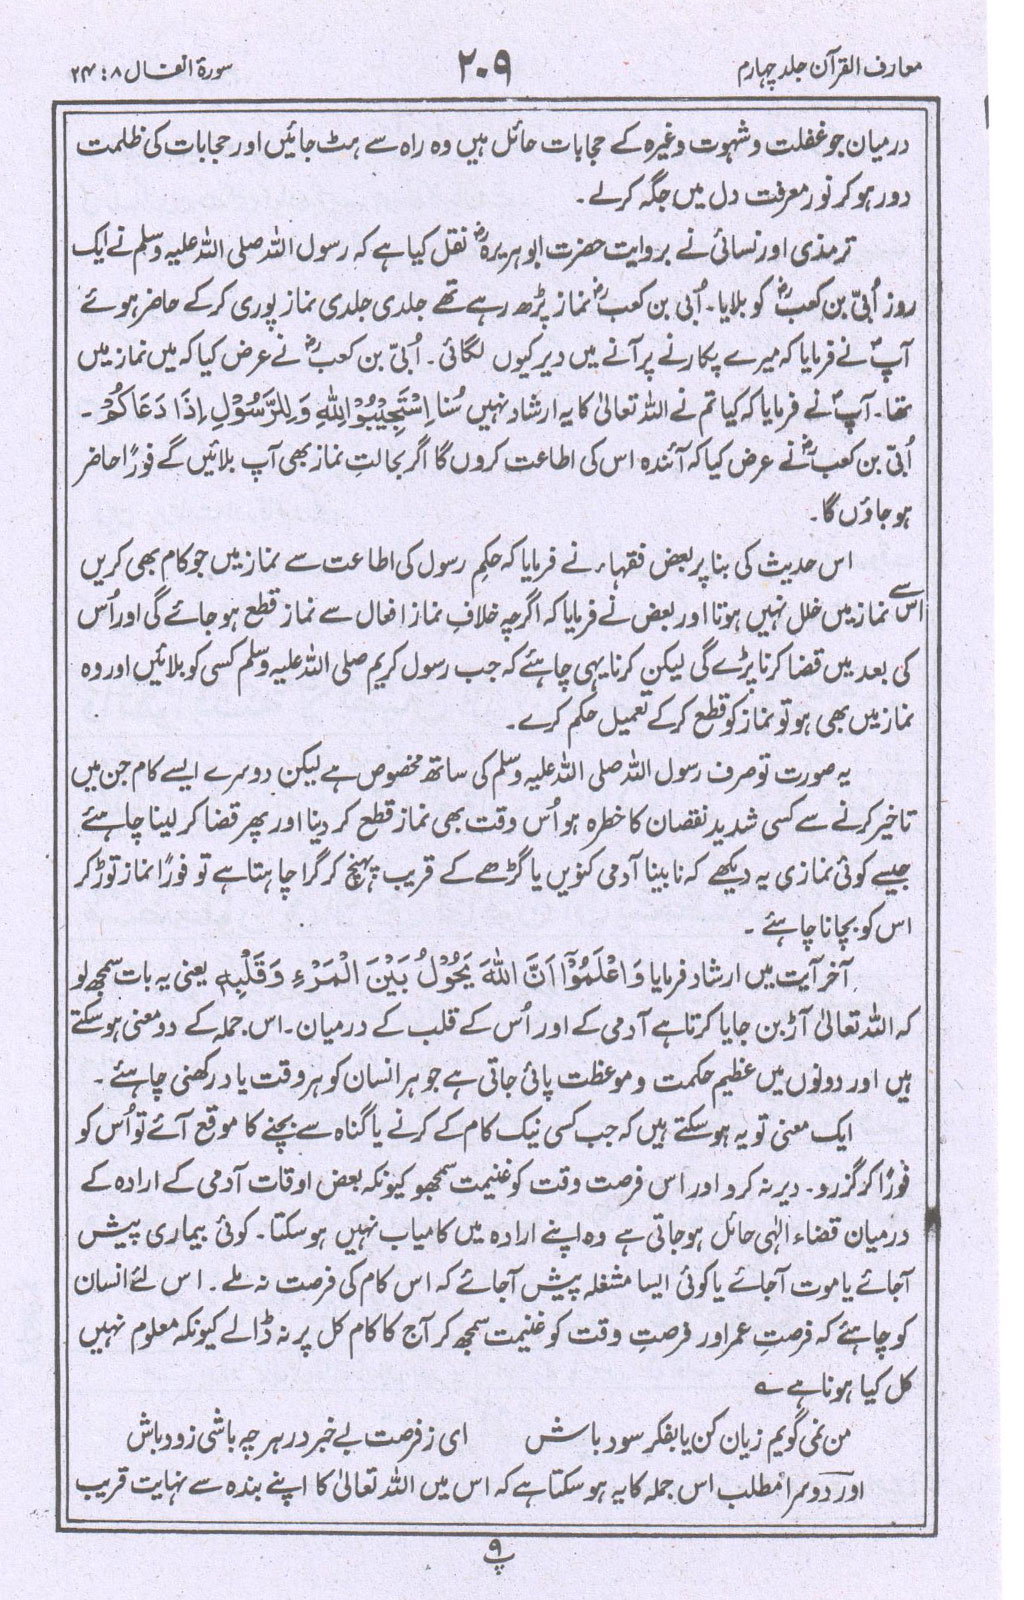 معارف القرآن جلد چہارم
۲۰۹
سورۃ انفال ۸ : ۲۴
درمیان جو غفلت و شہوت وغیرہ کے حجابات حائل ہیں وہ راہ سے ہٹ جائیں اور حجابات کی ظلمت
دور ہو کر نور معرفت دل میں جگہ کرلے ۔
ترمذی اور نسائی نے بروایت حضرت ابوہریرہؓ نقل کیا ہے کہ رسول اللہ صلی اللہ علیہ وسلم نے ایک
روز اُبیّ بن کعبؓ کو بلایا۔ اُبی بن کعبؓ نماز پڑھ رہے تھے جلدی جلدی نماز پوری کرکے حاضر ہوئے
آپؐ نے فرمایا کہ میرے پکارنے پر آنے میں دیر کیوں لگائی۔ اُبیّ بن کعبؓ نے عرض کیا کہ میں نماز میں
تھا۔ آپؐ نے فرمایا کہ کیا تم نے اللہ تعالیٰ کا یہ ارشاد نہیں سُنا اِسْتَجِیْبُوْا لِلّٰہِ وَ لِلرَّسُوْلِ اِذَا دَعَاکُمْ ۔
اُبیّ بن کعبؓ نے عرض کیا کہ آئندہ اس کی اطاعت کروں گا اگر بحالتِ نماز بھی آپ بلائیں گے فورًا حاضر
ہو جاؤں گا۔
اس حدیث کی بنا پر بعض فقہاء نے فرمایا کہ حکمِ رسول کی اطاعت سے نماز میں جو کام بھی کریں
اس سے نماز میں خلل نہیں ہوتا اور بعض نے فرمایا کہ اگرچہ خلافِ نماز افعال سے نماز قطع ہو جائے گی اور اُس
کی بعد میں قضا کرنا پڑے گی لیکن کرنا یہی چاہئے کہ جب رسول کریم صلی اللہ علیہ وسلم کسی کو بلائیں اور وہ
نماز میں بھی ہو تو نماز کو قطع کرکے تعمیل حکم کرے۔
یہ صورت تو صرف رسول اللہ صلی اللہ علیہ وسلم کی ساتھ مخصوص ہے لیکن دوسرے ایسے کام جن میں
تاخیر کرنے سے کسی شدید نقصان کا خطرہ ہو اُس وقت بھی نماز قطع کر دینا اور پھر قضا کر لینا چاہئے
جیسے کوئی نمازی یہ دیکھے کہ نابینا آدمی کنویں یا گڑھے کے قریب پہنچ کر گرا چاہتا ہے تو فورًا نماز توڑ کر
اس کو بچانا چاہئے ۔
آخر آیت میں ارشاد فرمایا وَاعْلَمُوْٓا اَنَّ اللّٰہَ یَحُوْلُ بَیْنَ الْمَرْءِ وَ قَلْبِہٖ یعنی یہ بات سمجھ لو
کہ اللہ تعالیٰ آڑ بن جایا کرتا ہے آدمی کے اور اُس کے قلب کے درمیان۔ اس جملہ کے دو معنی ہو سکتے
ہیں اور دونوں میں عظیم حکمت و موعظت پائی جاتی ہے جو ہر انسان کو ہر وقت یاد رکھنی چاہئے ۔
ایک معنی تو یہ ہو سکتے ہیں کہ جب کسی نیک کام کے کرنے یا گناہ سے بچنے کا موقع آئے تو اُس کو
فورًا کر گزرو۔ دیر نہ کرو اور اس فرصت وقت کو غنیمت سمجھو کیونکہ بعض اوقات آدمی کے ارادہ کے
درمیان قضاء الٰہی حائل ہو جاتی ہے وہ اپنے ارادہ میں کامیاب نہیں ہو سکتا۔ کوئی بیماری پیش
آجائے یا موت آجائے یا کوئی ایسا مشغلہ پیش آجائے کہ اس کام کی فرصت نہ ملے ۔ اس لئے انسان
کو چاہئے کہ فرصتِ عمر اور فرصتِ وقت کو غنیمت سمجھ کر آج کا کام کل پر نہ ڈالے کیونکہ معلوم نہیں
کل کیا ہونا ہے ؎
من نمی گویم زیان کن یا بفکر سود باش ای ز فرصت بے خبر در ہر چہ باشی زود باش
اور دوسرا مطلب اس جملہ کا یہ ہو سکتا ہے کہ اس میں اللہ تعالیٰ کا اپنے بندہ سے نہایت قریب